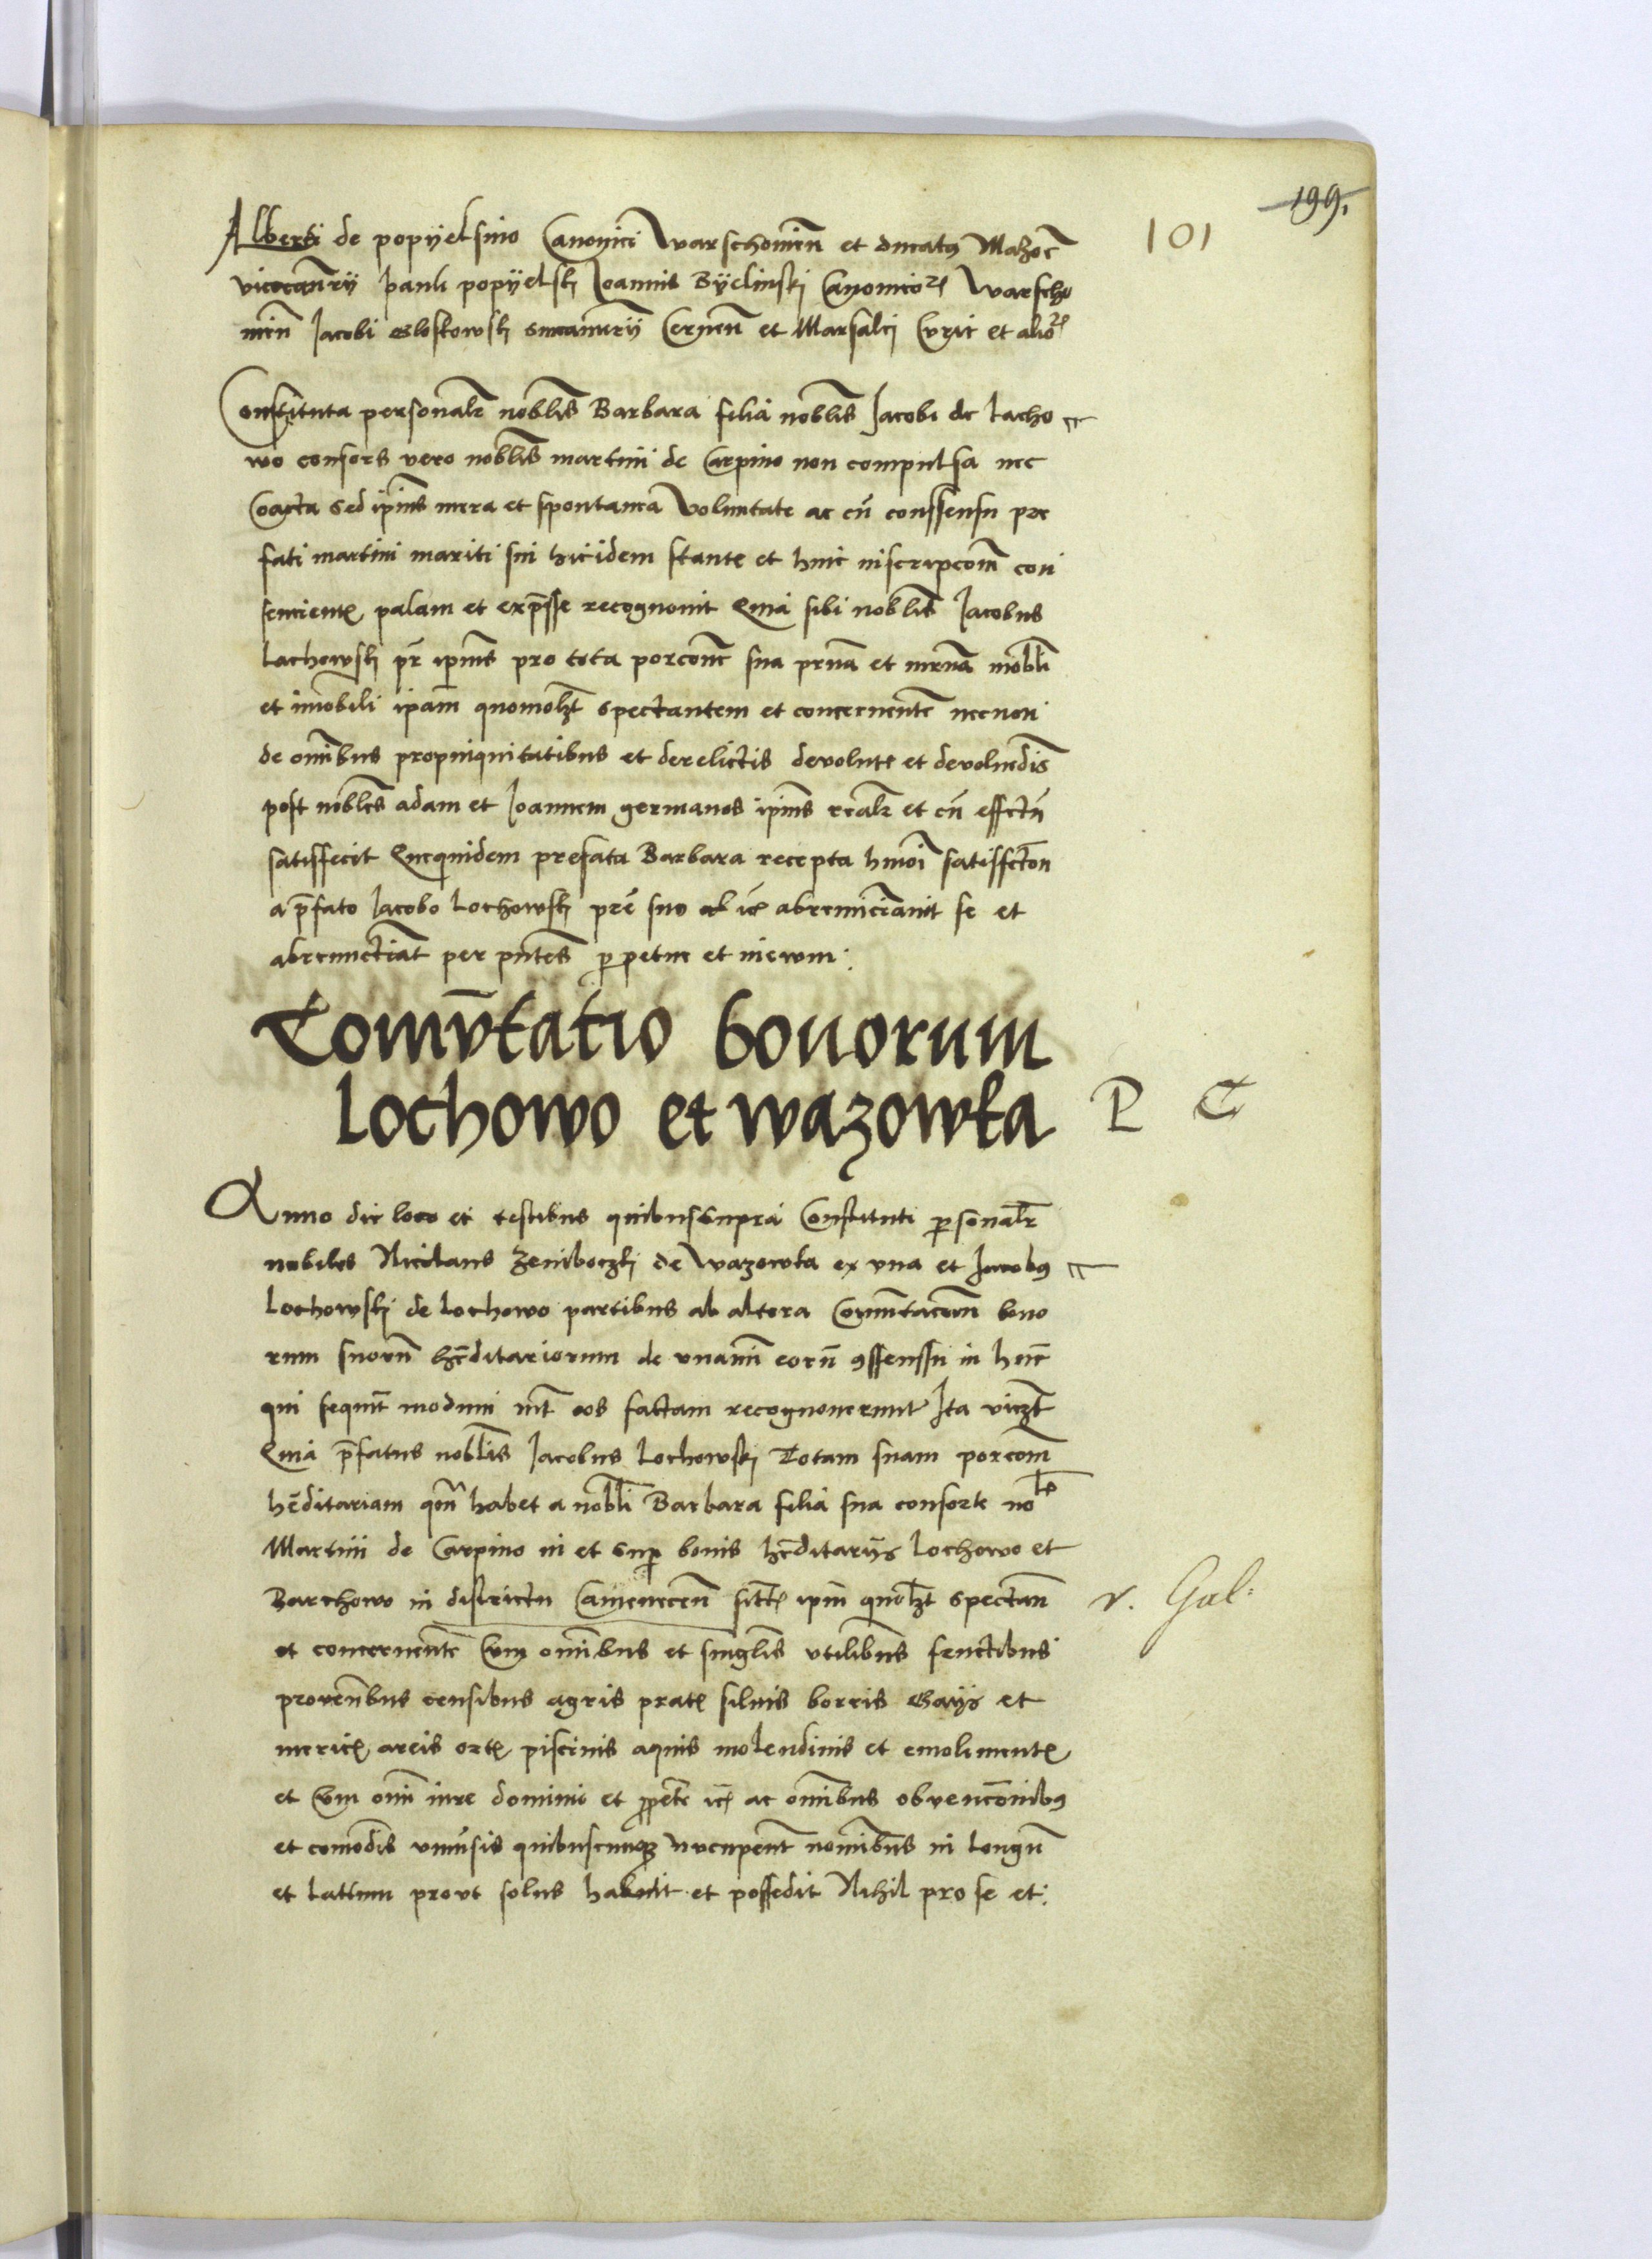 199.
101
Alberti de popyelsino Canonici Warschouien et ducatus Mazoc
vicecanrij Pauli popyelski Joannis Byelinski Canonicor Warscho
uien Jacobi Gloskowski succamerarij Cernen et Marsalci Curie et alior
Constituta personalr noblis Barbara filia noblis Jacobi de Lacho
wo consors vero noblis martini de Carpino non compulsa nec
Coacta sed ipius mera et spontanea Voluntate ac cu conssensu pre
fati martini mariti sui hicidem stante et huic inscripcom con
sencientes palam et expsse recognouit Quia sibi noblis Jacobus
Lachowski pr ipius pro tota porcone sua prna et mrna mobli
et imobili ipam quomolzt spectantem et concernente necnon
de omibus propinquitatibus et derelictis devolute et devoluendis
post nobles adam et Joannem germanos ipius realr et cu effectu
satisfecit Quequidem prefata Barbara recepta hmoi satisfcton
a pfato Jacobo Lochowski pre suo abrenunciauit se et
abrenunctiat per pntes perpetue et in ewm
Comutatio bonorum
Lochowo et wazowka
P C
Anno die loco et testibus quibus supra Constituti personalr
nobiles Nicolaus Zemboczki de Wazowka ex vna et Jacobus
Lochowski de Lochowo partibus ab altera Comutacom bono
rum suoru hereditariorum de vnanimi eoru cssenssu in hunc
qui sequit modum int eos factam recognouerunt Ita viczt
Quia pfatus noblis Jacobus Lochowski Totam suam porcom
heditariam qm habet a nobli Barbara filia sua consorte noblis
Martini de Carpino in et super bonis hreditarijs Lochowo et
Barchowo in districtu Camenecen sitis ipm quolzt spectan
v. Gal:
et concernente Cum omibus et singlis vtilibus fructibus
prouentibus censibus agris pratis siluis borris Gayis et
mericis areis ortis piscinis aquis molendinis et emolumentis
et Cum omi iure dominio et ppete ac omibus obvenconibus
et comodis vniuersis quibuscunque nucupent nomibus in longu
et latum prout solus habuit et possedit Nihil pro se et